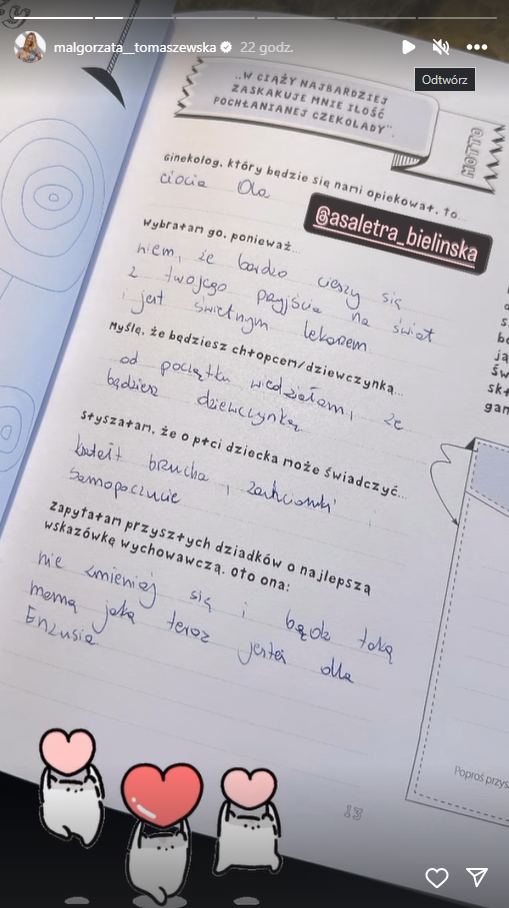 malgorzata__tomaszewska 22 godz.
Odtwórz
„W CIĄŻY NAJBARDZIEJ
ZASKAKUJE MNIE ILOŚĆ
POCHŁANIANEJ CZEKOLADY”.
MOTTO
Ginekolog, który będzie się nami opiekował, to...
ciocia Ola
@asaletra_bielinska
Wybrałam go, ponieważ...
wiem, że bardzo cieszy się
z twojego przyjścia na świat
i jest świetnym lekarzem
Myślę, że będziesz chłopcem/dziewczynką...
od początku wiedziałam, że
będziesz dziewczynką
Słyszałam, że o płci dziecka może świadczyć...
kształt brzucha, zachcianki i
samopoczucie
Zapytałam przyszłych dziadków o najlepszą
wskazówkę wychowawczą. Oto ona:
nie zmieniaj się i bądź taką
mamą jaką teraz jesteś dla
Enzusia
13
Poproś przys